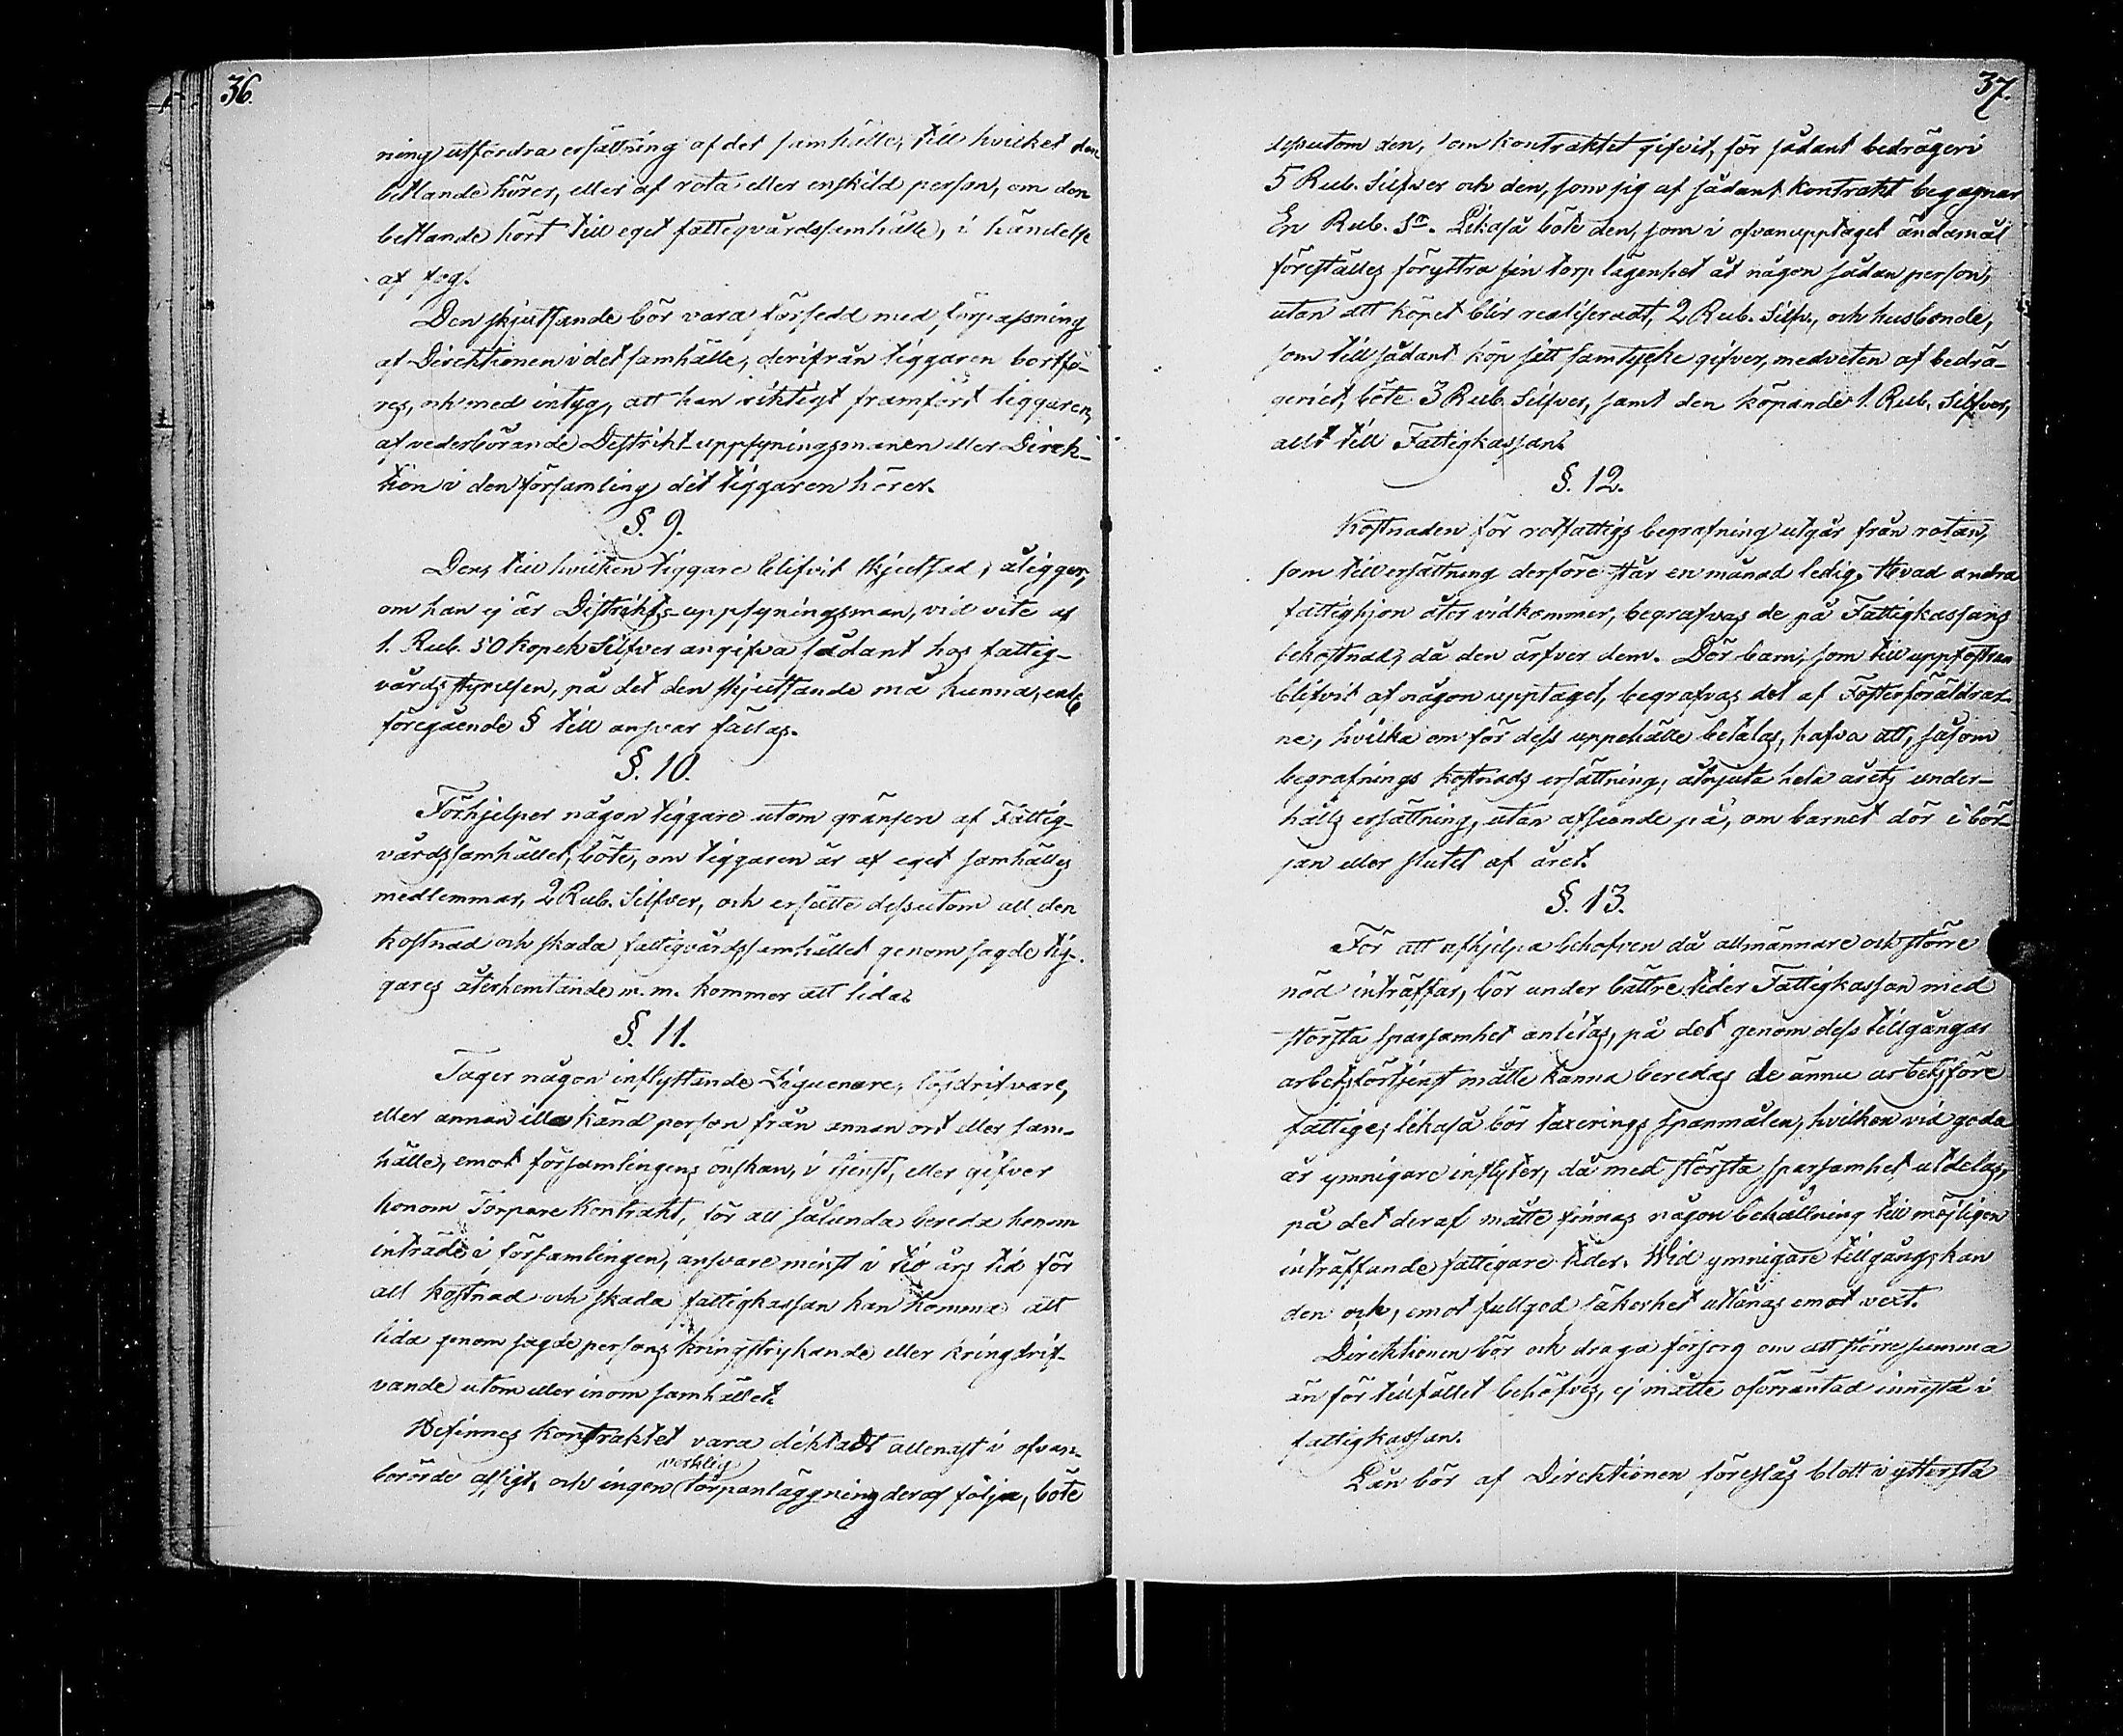 36.
ning utfordra ersättning af det samhälle, till hvilket den
betlande hörer, eller af rota eller enskild person, om den
betlande hört till eget fattigvårdssamhälle, i händelse
af tog.
Den skjutsande bör vara försedd med förpassning
af Direktionen i det samhälle, derifrån tiggaren bortfö-
res, och med intyg, att han riktigt framfört tiggaren,
af vederbörande Distrikt-uppsyningsmanen eller Direk-
tion i den församling dit tiggaren hörer.
§. 9.
Den, till hvilken tiggare blifvit skjutsad, åligger,
om han ej är Distrikts-uppsyningsman, vid vite af
1. Rub. 50 kopek Silfver angifva sådant hos fattig-
vårds styrelsen, på det den skjutsande må kunna, enl.
föregående § till ansvar fällas.
§. 10.
Förhjelper någon tiggare utom gränsen af Fattig-
vårdssamhället, böte, om tiggaren är af eget samhälles
medlemmar, 2 Rub. Silfver, och ersätte dessutom all den
kostnad och skada fattigvårdssamhället genom sagde tig-
gares återhemtande m. m. kommer att lida.
§. 11.
Tager någon inflyttande Ziguenare, lösdrifvare,
eller annan illa känd person från annan ort eller sam-
hälle, emot församlingens önskan, i tjenst, eller gifver
honom Torpare Kontrakt, för att sålunda bereda honom
inträde i församlingen, ansvare minst i tio års tid för
all kostnad och skada fattigkassan kan komma att
lida genom sagde persons kringstrykande eller kringdrif-
vande utom eller inom samhället.
Befinnes kontraktet vara diktadt allenast i ofvan-
berörde afsigt, och ingen verklig torpanläggning deraf följa, böte
37.
dessutom den, som kontraktet gifvit, för sådant bedrägeri
5 Rub. Silfver och den, som sig af sådant kontrakt begagnar
En Rub. Sr. Likaså böte den, som i ofvanupptaget ändamål
föreställes föryttra sin torp lägenhet åt någon sådan person,
utan att köpet blir realiseradt, 2 Rub. Silfv., och husbonde,
som till sådant köp sitt samtycke gifver, medveten af bedrä-
geriet, böte 3 Rub. Silfver, samt den köpande 1. Rub. Silfver,
allt till Fattigkassan.
§. 12.
Kostnaden för rotfattigs begrafning utgår från rotan,
som till ersättning derföre står en månad ledig. Hvad andra
fattighjon åter vidkommer, begrafvas de på Fattigkassans
bekostnad, då den ärfver dem. Dör barn, som till uppfostran
blifvit af någon upptaget, begrafvas det af Fosterföräldrar-
ne, hvilka om för dess uppehälle betalas, hafva att, såsom
begrafnings kostnads ersättning, åtnjuta hela årets under-
hålls ersättning, utan afseende på, om barnet dör i bör-
jan eller slutet af året.
§. 13.
För att afhjelpa behofven då allmännare och större
nöd inträffar, bör under bättre tider Fattigkassan med
största sparsamhet anlitas, på det genom dess tillgångar
arbetsförtjenst måtte kunna beredas de ännu arbetsföre
fattige; likaså bör taxerings spanmålen, hvilken vid goda
år ymnigare inflyter, då med största sparsamhet utdelas,
på det deraf måtte finnas någon behållning till möjligen
inträffande fattigare tider. Wid ymnigare tillgång, kan
den ock, emot fullgod säkerhet utlånas emot vext.
Direktionen bör ock draga försorg om att större summa
än för tillfället behöfves, ej måtte oförräntad innestå i
fattigkassan.
Lån bör af Direktionen föreslås blott i yttersta